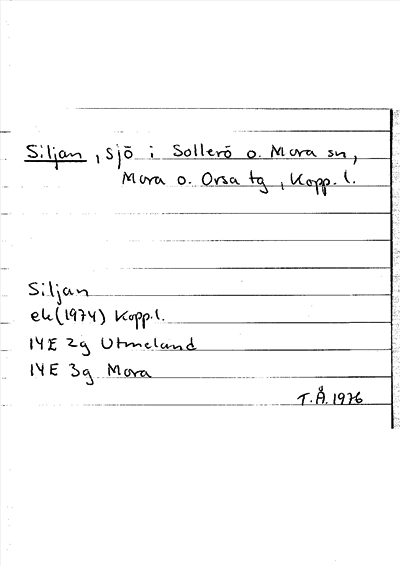 Siljan, sjö i Sollerö o. Mora sn,
Mora o. Orsa tg, Kopp. l.
Siljan
ek(1974) Kopp.l.
14E 2g Utmeland
14E 3g Mora
T.Å.1976